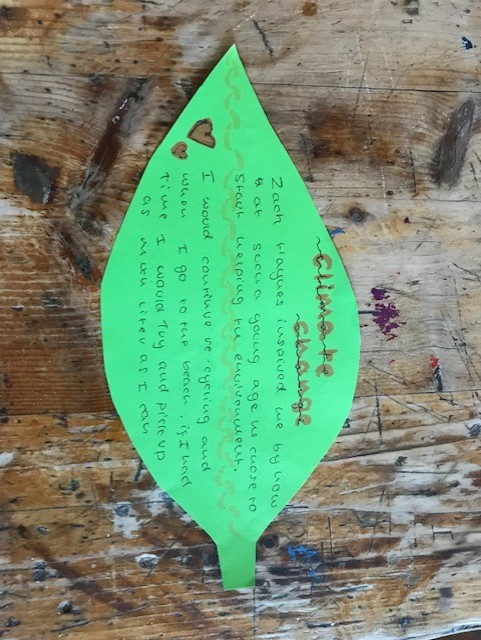 ~climate
change~
Zach Haynes inspired me by how
at such a young age he chose to
start helping the environment.
I would continue recycling and
when I go to the beach, if I had
time I would try and pick up
as much litter as I can